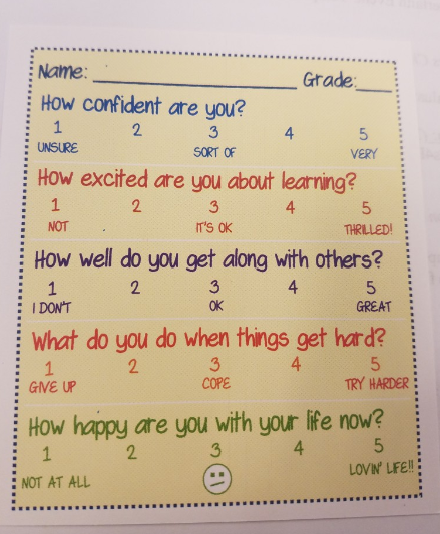 Name: ____________________ Grade:____
How confident are you?
1 2 3 4 5
UNSURE SORT OF VERY
How excited are you about learning?
1 2 3 4 5
NOT IT'S OK THRILLED!
How well do you get along with others?
1 2 3 4 5
I DON'T OK GREAT
What do you do when things get hard?
1 2 3 4 5
GIVE UP COPE TRY HARDER
How happy are you with your life now?
1 2 3 4 5
NOT AT ALL LOVIN' LIFE!!